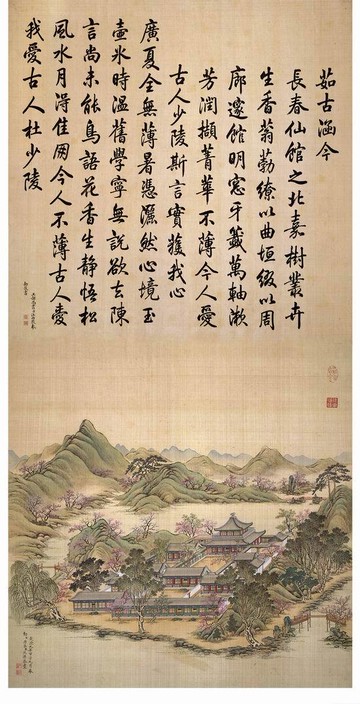 茹古涵今
長春仙館之北嘉樹叢卉
生香蓊勃繚以曲垣綴以周
廊邃館明窓牙籤萬軸漱
芳潤擷菁華不薄今人愛
古人少陵斯言實獲我心
廣夏全無薄暑憑灑然心境玉
壺氷時溫舊學寧無說欲去陳
言尚未能鳥語花香生靜悟松
風水月得佳朋今人不薄古人愛
我愛古人杜少陵